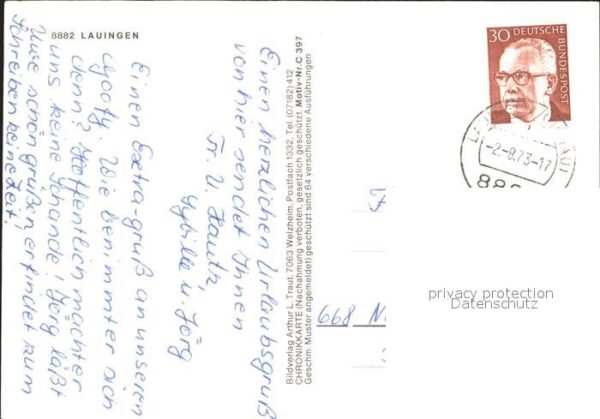 8882 LAUINGEN
Einen herzlichen Urlaubsgruß
von hier sendet Ihnen
Fr. U. Kautz
Sybille u. Jörg
Einen Extra-gruß an unseren
Goofy. Wie benimmter sich
denn? Hoffentlich machter
uns keine Schande! Jörg läßt
Uwe schön grüßen, er findet zum
Schreiben keine Zeit.
Bildverlag Arthur L. Traut, 7063 Welzheim, Postfach 1332, Tel. (07182) 412
CHRONIKKARTE (Nachahmung verboten, gesetzlich geschützt. Motiv-Nr. C 397
Geschm. Muster angemeldet) geschützt sind 64 verschiedene Ausführungen
30 DEUTSCHE
BUNDESPOST
-2.-8.73-17
888
668 N
privacy protection
Datenschutz